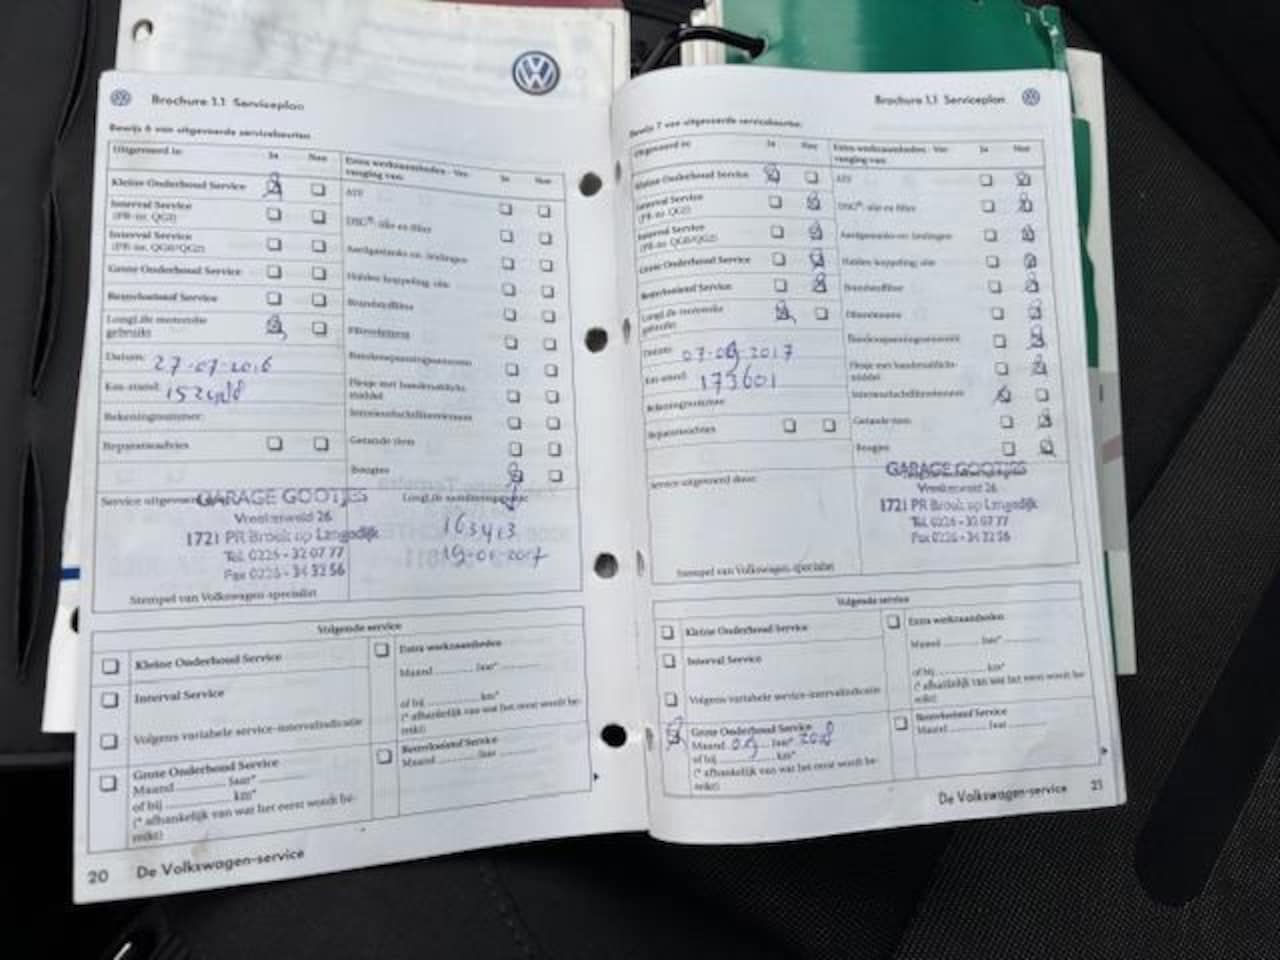 Brochure 1.1 Serviceplan
Bewijs 6 van uitgevoerde servicebeurten
Uitgevoerd is: Ja Nee
Kleine Onderhoud Service
Interval Service
(PR-nr. QG2)
Interval Service
(PR-nr. QG0/QG2)
Grote Onderhoud Service
Remvloeistof Service
LongLife motorolie
gebruikt
Datum: 27-07-2016
Km-stand:
Rekeningnummer:
Reparatieadvies
Extra werkzaamheden - Ver-
vanging van: Ja Nee
ATF
DSG®-olie en filter
Aardgastanks en -leidingen
Haldex koppeling: olie
Brandstoffilter
Bandenspanningssensoren
Flesje met bandenafdicht-
middel
Interieurluchtfilterelement
Getande riem
Bougies
163413
Service uitgevoerd
GARAGE GOOTJES
1721 PR Broek op Langedijk
Tel. 0226 - 32 07 77
Fax 0226 - 34 32 56
Stempel van Volkswagen-specialist
Volgende service
Kleine Onderhoud Service
Interval Service
Volgens variabele service-intervalindicatie
Grote Onderhoud Service
Maand Jaar*
of bij km*
(* afhankelijk van wat het eerst wordt be-
reikt)
Extra werkzaamheden
Maand Jaar*
of bij km*
(* afhankelijk van wat het eerst wordt be-
reikt)
Remvloeistof Service
Maand Jaar
20 De Volkswagen-service
Brochure 1.1 Serviceplan
Bewijs 7 van uitgevoerde servicebeurten
Uitgevoerd is: Ja Nee
Kleine Onderhoud Service
Interval Service
(PR-nr. QG2)
Interval Service
(PR-nr. QG0/QG2)
Grote Onderhoud Service
Remvloeistof Service
LongLife motorolie
gebruikt
Datum: 07-09-2017
Km-stand: 173601
Rekeningnummer:
Reparatieadvies
Extra werkzaamheden - Ver-
vanging van: Ja Nee
ATF
DSG®-olie en filter
Aardgastanks en -leidingen
Haldex koppeling: olie
Brandstoffilter
Bandenspanningssensoren
Flesje met bandenafdicht-
middel
Interieurluchtfilterelement
Getande riem
Bougies
Service uitgevoerd door:
GARAGE GOOTJES
1721 PR Broek op Langedijk
Tel. 0226 - 32 07 77
Fax 0226 - 34 32 56
Stempel van Volkswagen-specialist
Volgende service
Kleine Onderhoud Service
Interval Service
Volgens variabele service-intervalindicatie
Grote Onderhoud Service
Maand 09 Jaar* 2018
of bij km*
(* afhankelijk van wat het eerst wordt be-
reikt)
Extra werkzaamheden
Maand Jaar*
of bij km*
(* afhankelijk van wat het eerst wordt be-
reikt)
Remvloeistof Service
Maand Jaar
De Volkswagen-service 21